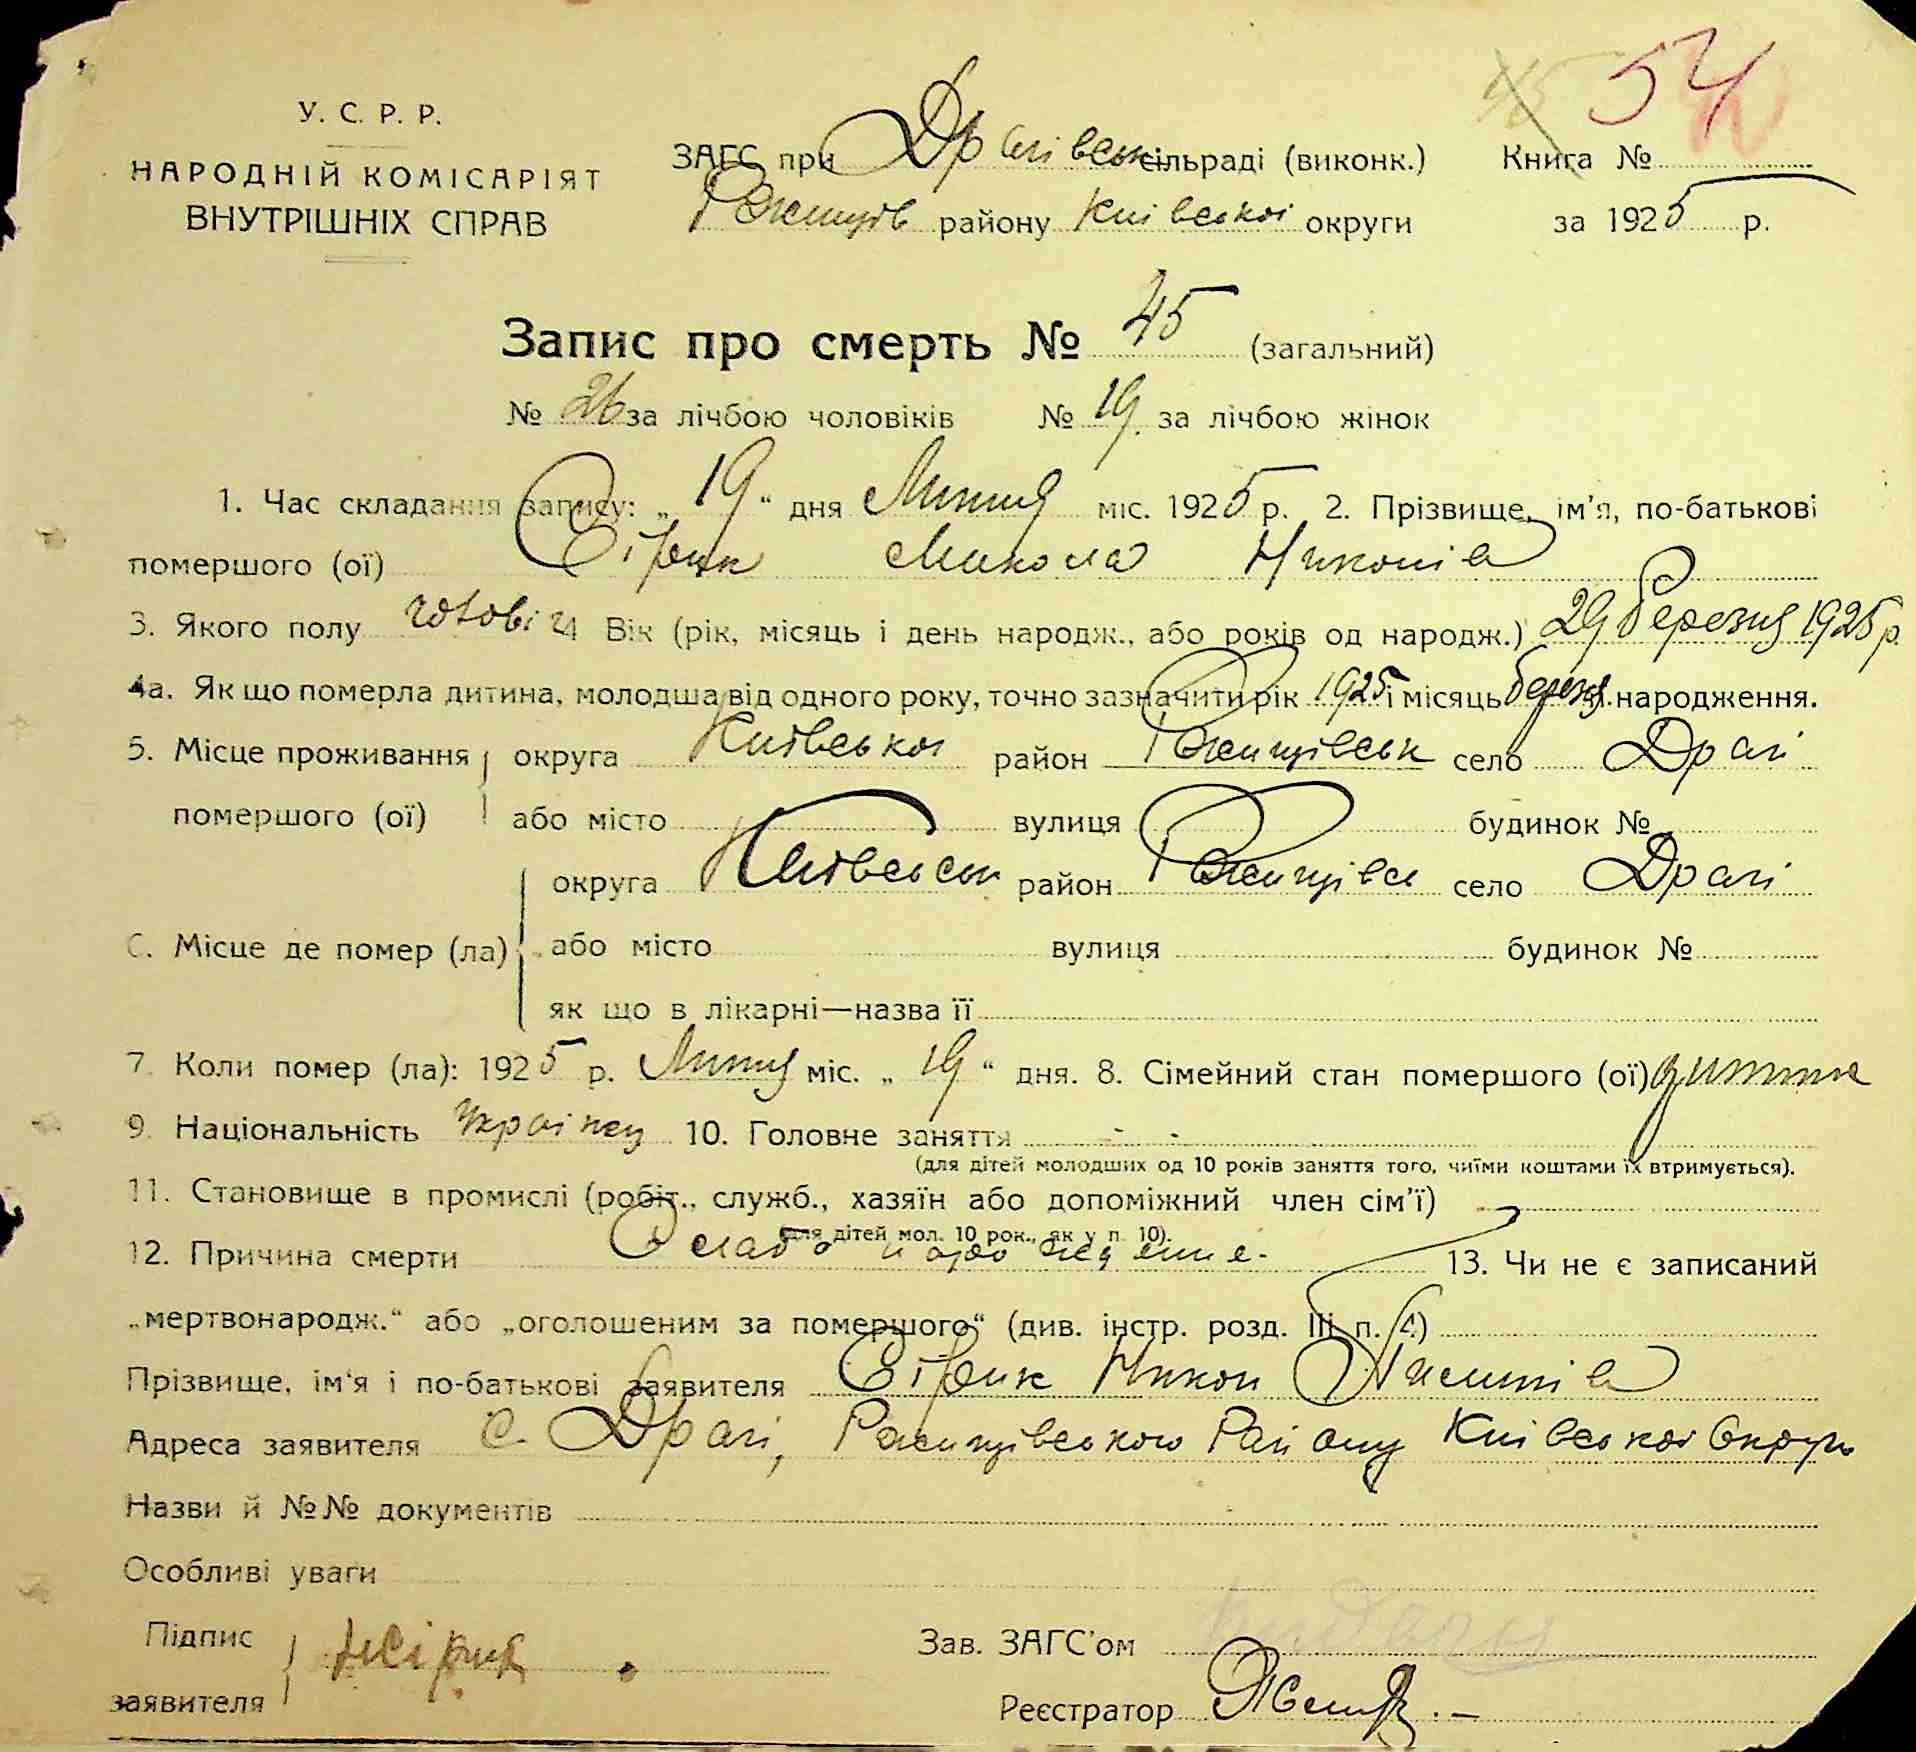 45 54
У. С. Р. Р.
НАРОДНІЙ КОМІСАРІЯТ
ВНУТРІШНІХ СПРАВ
ЗАГС при Драівськ сільраді (виконк.) Книга №
Ржищів району Київськоі округи за 1925 р.
Запис про смерть № 45 (загальний)
№ 26 за лічбою чоловіків № 19. за лічбою жінок
1. Час складання запису: „ 19 “ дня Липня міс. 1925 р. 2. Прізвище, ім'я, по-батькові
помершого (ої) Сірик Микола Никонів
3. Якого полу чоловіч 4 Вік (рік, місяць і день народж., або років од народж.) 29 березня 1925 р.
4а. Як що померла дитина, молодша від одного року, точно зазначити рік 1925 і місяць березня народження.
5. Місце проживання округа Київськоі район Ржищівськ село Драі
помершого (ої) або місто вулиця будинок №
округа Київськ район Ржищівсь село Драі
6. Місце де помер (ла) або місто вулиця будинок №
як що в лікарні—назва її
7. Коли помер (ла): 1925 р. Липня міс. „ 19 “ дня. 8. Сімейний стан помершого (ої) дитина
9. Національність Украінец 10. Головне заняття - -
(для дітей молодших од 10 років заняття того, чиїми коштами їх втримується).
11. Становище в промислі (робіт., служб., хазяїн або допоміжний член сім'ї)
(для дітей мол. 10 рок., як у п. 10).
12. Причина смерти 13. Чи не є записаний
„мертвонародж.“ або „оголошеним за помершого“ (див. інстр. розд. III п. 4)
Прізвище, ім'я і по-батькові заявителя Сірик Никон
Адреса заявителя с. Драі, Ржищівського Району Киівськоі Округи
Назви й №№ документів
Особливі уваги
Підпис Зав. ЗАГС'ом
заявителя Реєстратор